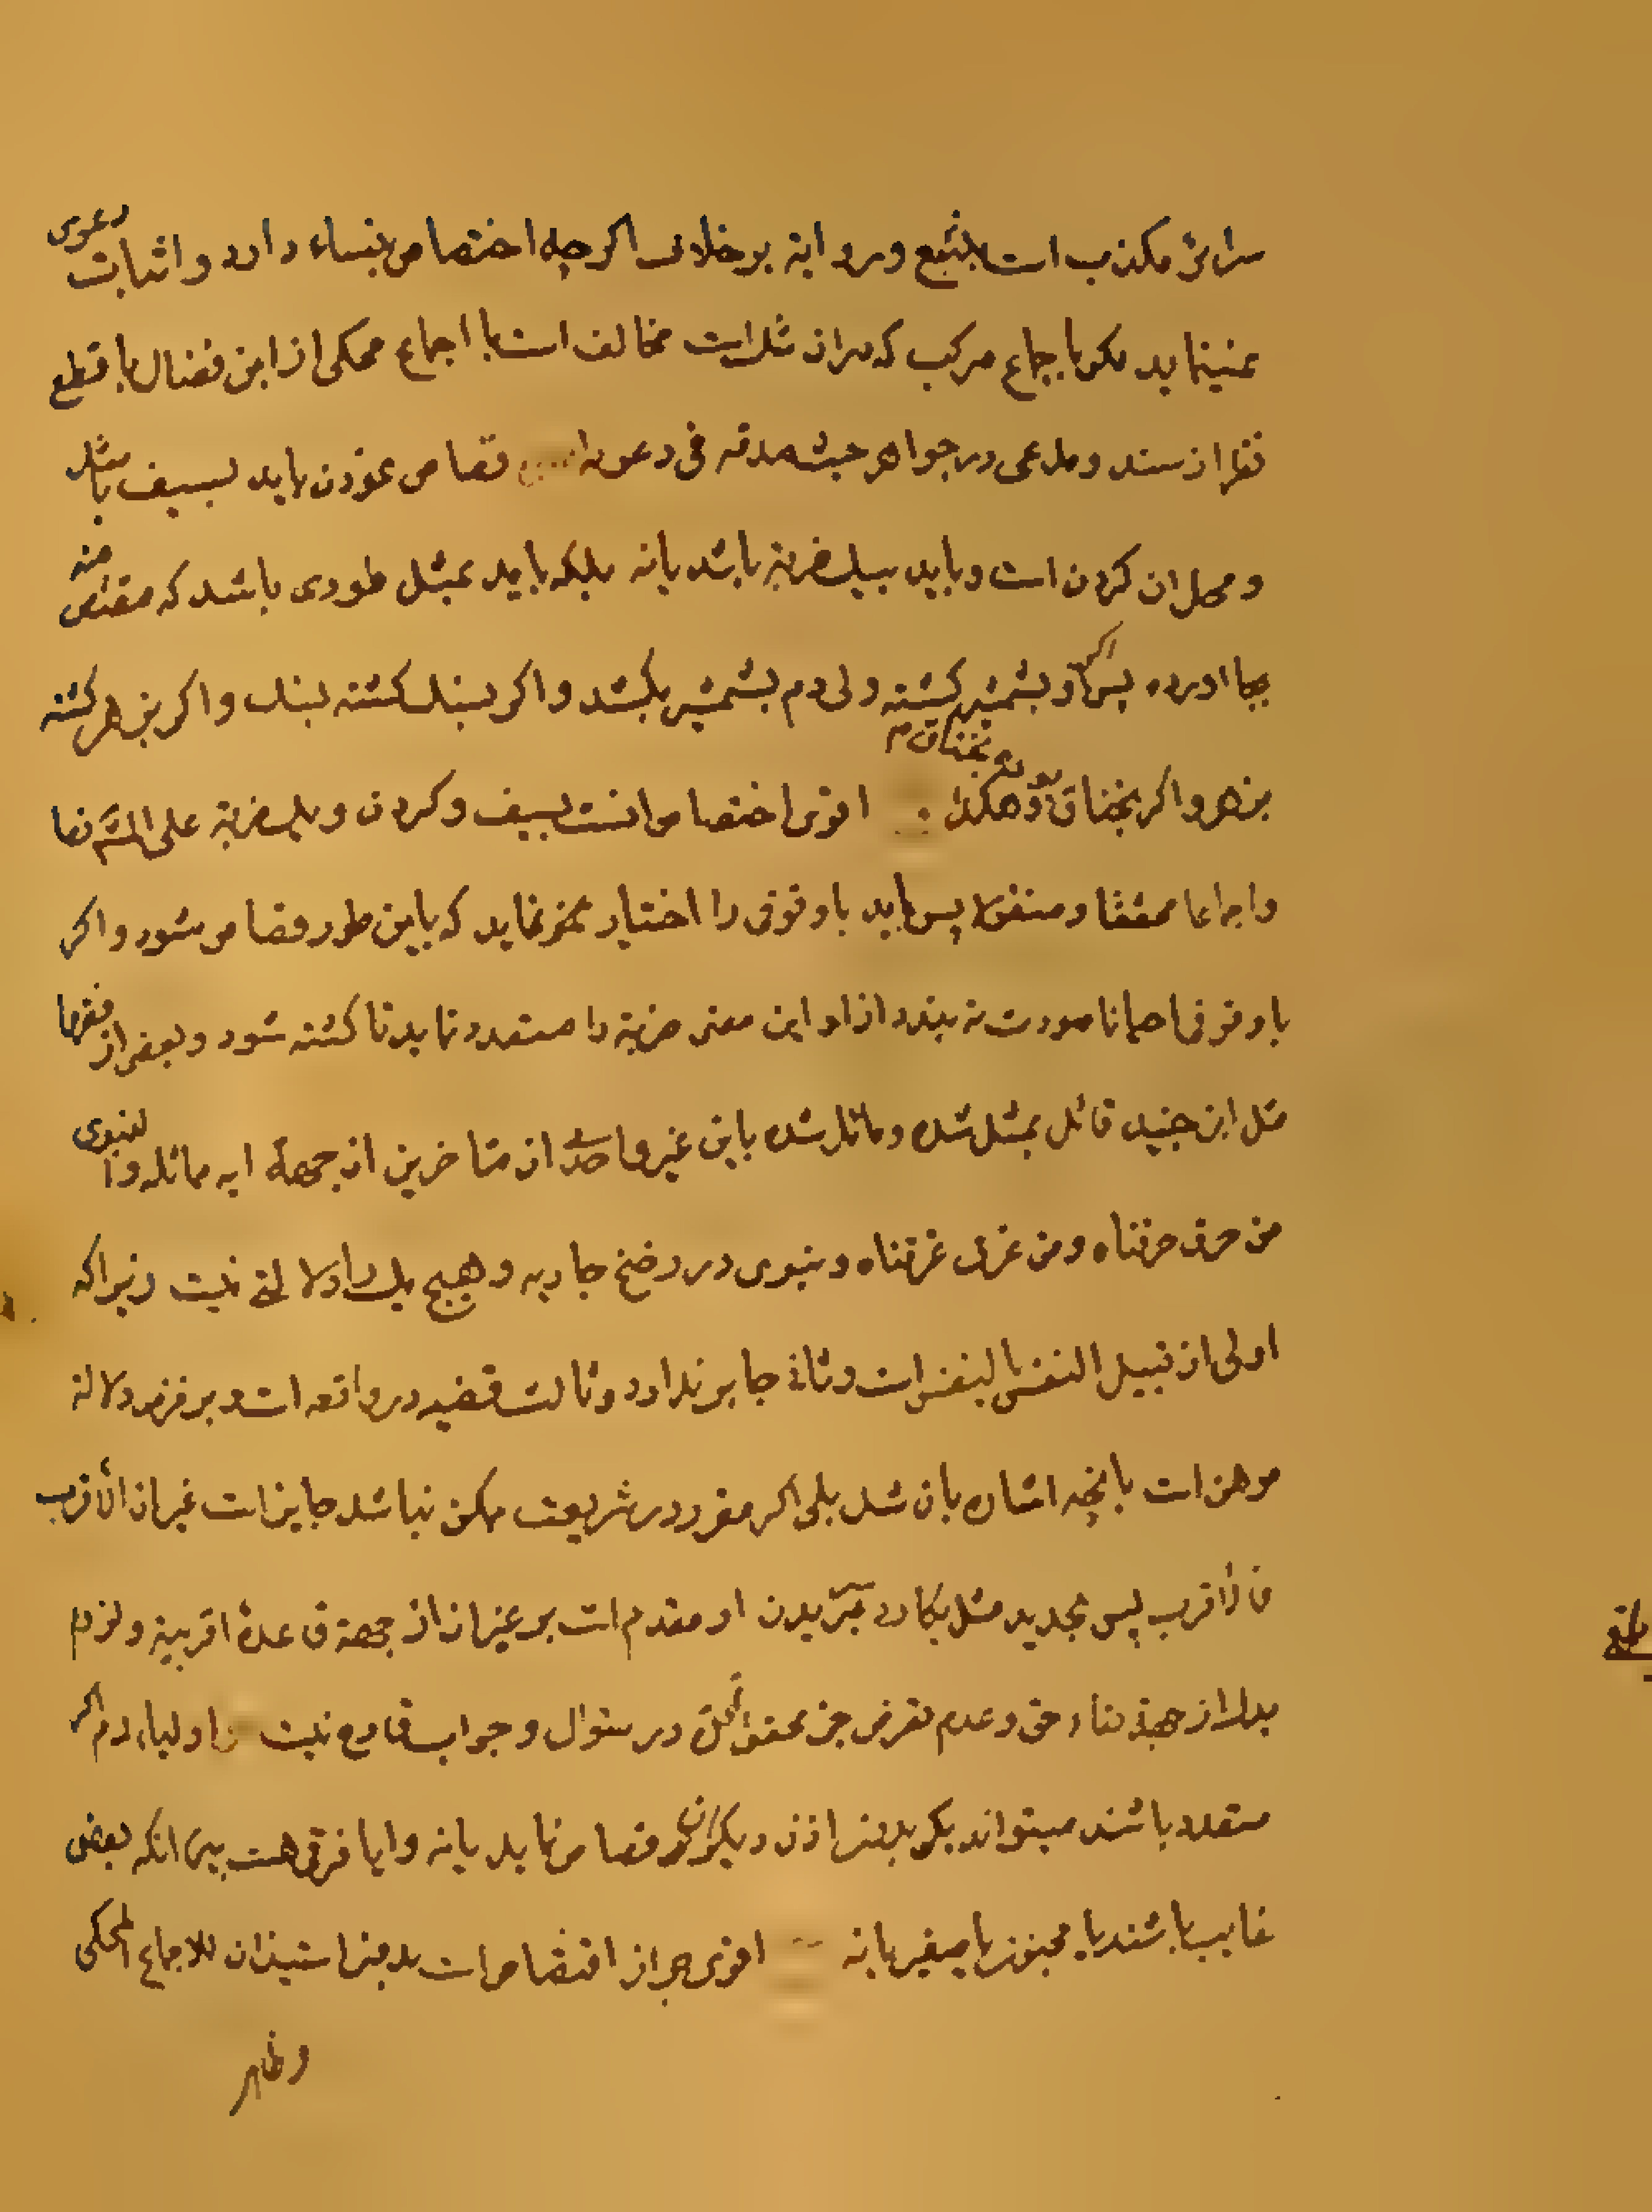 سرائر مکذب است بتتبع و روایة بر خلاف اکرچه اختصاص بنساء دارد و اثبات دعوی
نمینماید مکر باجماع مرکب که سرائر است مخالف است با اجماع محکی از ابن فضال با قطع
نظر از سند و مدعی در جواهر حیث صدقه فی دعویه قصاص نمودن باید بسیف باشد
و محل ان کردن است و باید بیک ضربة باشد یا نه بلکه باید بمثل طوری باشد که مقتص منه
بجا اورده پس اکر او بشمشیر کشته ولی دم بشمشیر بکشد و اکر بسنک کشته بسنک و اکر بزهر کشته
بزهر و اکر بخناق بخناق و هکذا اقوی اختصاص انست بسیف و کردن و بیک ضربة علی المشهور نصا
و اجماعا محققا و منقولا پس باید باوقوفی را اختیار نماید که باین طور قصاص شود و اکر
باوقوفی احیانا صورت نه بندد از او این معنی ضربة را متعدد نماید تا کشته شود و بعضی از فقها
مثل ابن جنید قائل بمثل شده و مائل شده باین غیر واحدی از متاخرین از جهة ایه مماثله و النبوی
من حرق حرقناه و من غرق غرقناه و نبوی در رضخ جاریه و هیچ یک را دلالتی نیست زیراکه
اولی از قبیل النفس بالنفس است و ثانی جابر ندارد و ثالث قضیه در واقعه است و بر فرض دلالة
موهن است بانچه اشاره بان شد بلی اکر مقرر در شریعت ممکن نباشد جایز است غیر ان الأقرب
فالأقرب پس بحدید مثل کارد بریدن او مقدم است بر غیر ان از جهة قاعدة اقربیة و لزوم
بدل از جهة بقاء حق و عدم تعرض جز محقق ثانی در سئوال و جواب قادح نیست و اولیاء دم اکر
متعدد باشند میتواند یکی بدون اذن دیکران قصاص نماید یا نه و ایا فرقی هست بین انکه بعض
غایب باشند یا مجنون یا صغیر یا نه اقوی جواز اقتصاص است بدون استیذان للاجماع المحکی
و ظاهر